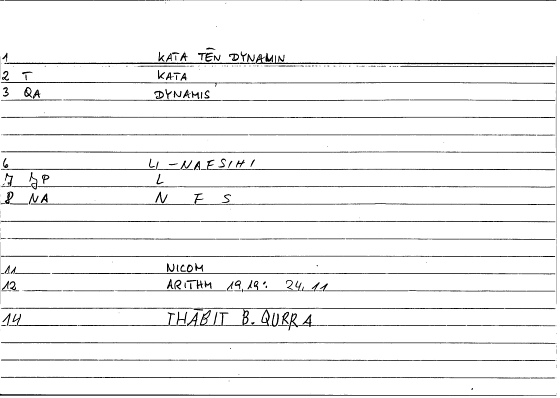 1 KATA TĒN DYNAMIN
2 T KATA
3 QA DYNAMIS
6 LI-NAFSIHI
7 JP L
8 NA N F S
11 NICOM
12 ARITHM 19,19: 24,11
14 THĀBIT B. QURRA